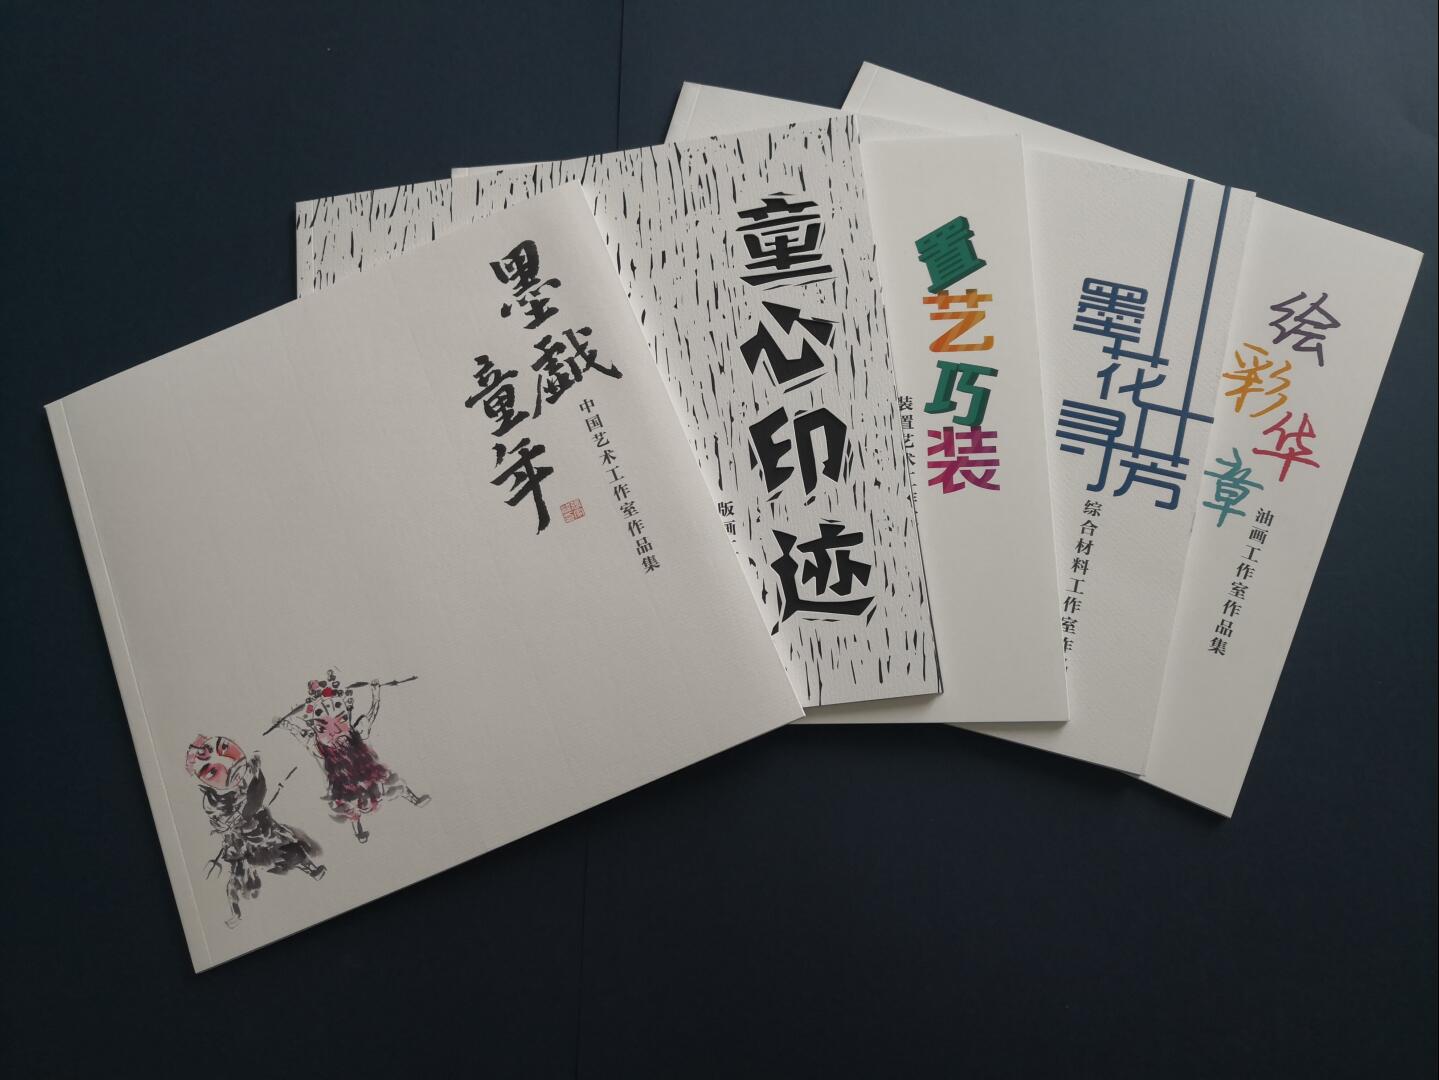 墨戲
童年
中国艺术工作室作品集
童心印迹
版画
置艺巧装
装置艺术工作
墨花寻芳
综合材料工作室作
绘彩华章
油画工作室作品集